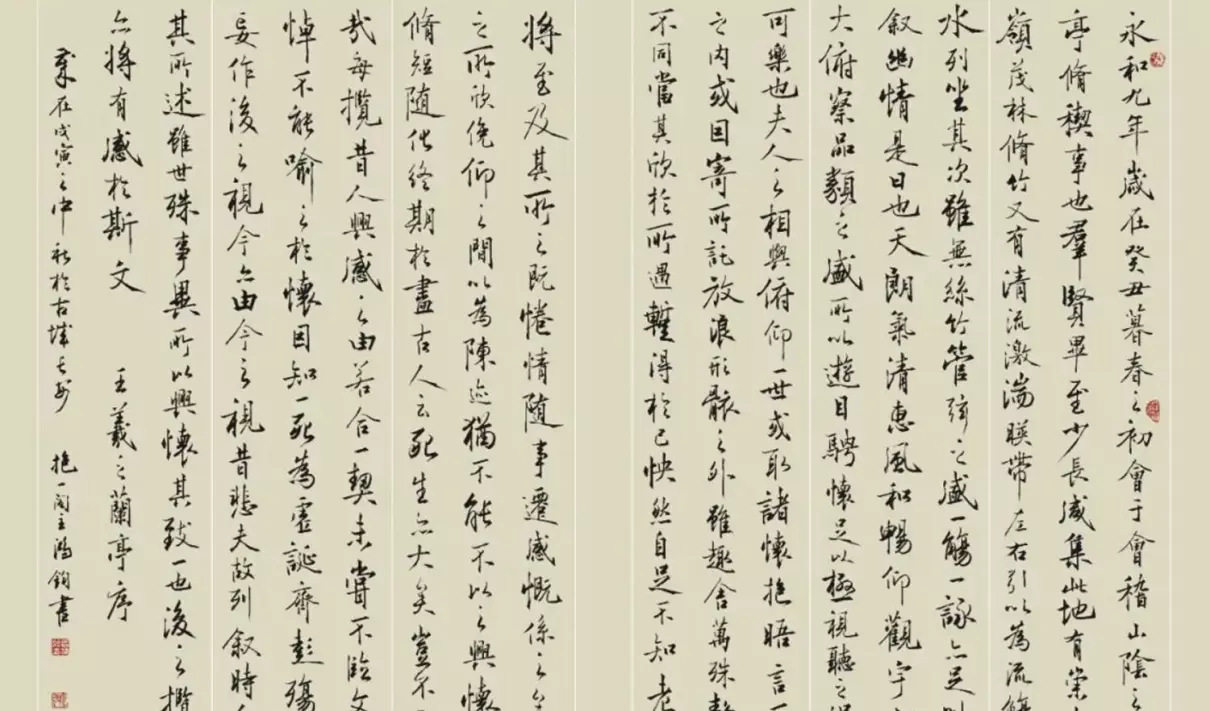 永和九年歲在癸丑暮春之初會于會稽山陰之
亭脩稧事也羣賢畢至少長咸集此地有崇
嶺茂林脩竹又有清流激湍暎帶左右引以為流
水列坐其次雖無絲竹管弦之盛一觴一詠亦足
敘幽情是日也天朗氣清惠風和暢仰觀宇
大俯察品類之盛所以遊目騁懷足以極視聽之
可樂也夫人之相與俯仰一世或取諸懷抱晤言一
之內或因寄所託放浪形骸之外雖趣舍萬殊
不同當其欣於所遇蹔得於己怏然自足不知老
將至及其所之既惓情隨事遷感慨係之
之所欣俛仰之間以為陳迹猶不能不以之興懷
脩短隨化終期於盡古人云死生亦大矣豈不
哉每攬昔人興感之由若合一契未嘗不臨文
悼不能喻之於懷固知一死為虛誕齊彭殤
妄作後之視今亦由今之視昔悲夫故列敘時
其所述雖世殊事異所以興懷其致一也後之攬
亦將有感於斯文 王羲之蘭亭序
歲在戊寅之中秋於古城長安 抱一閣主鴻鈞書